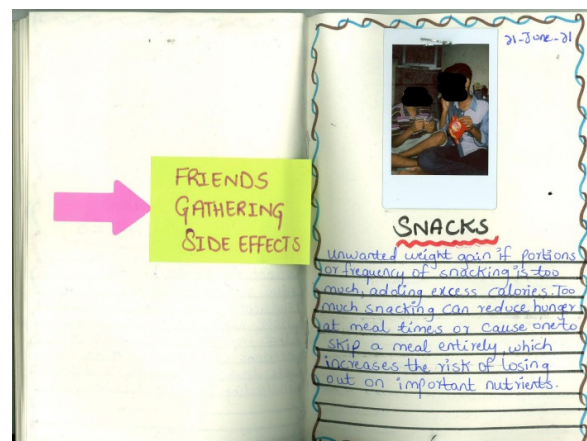 FRIENDS
GATHERING
SIDE EFFECTS
21-June-21
SNACKS
unwanted weight gain if portions
or frequency of snacking is too
much, adding excess calories. Too
much snacking can reduce hunger
at meal times or cause one to
skip a meal entirely, which
increases the risk of losing
out on important nutrients.